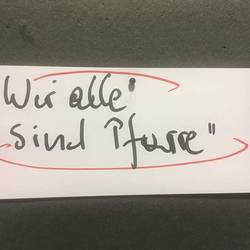 Wir alle'
sind Pfarre"